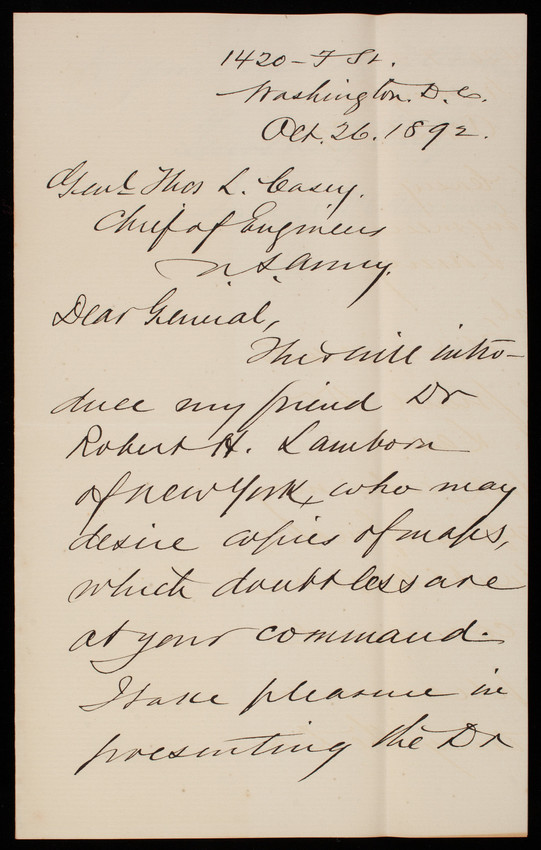 1420 - F St.
Washington. D. C.
Oct. 26. 1892.
Genl Thos L. Casey.
Chief of Engineers
U. S. Army.
Dear General,
This will intro-
duce my friend Dr
Robert H. Lamborn
of New York, who may
desire copies of maps,
which doubtless are
at your command.
I take pleasure in
presenting the Dr